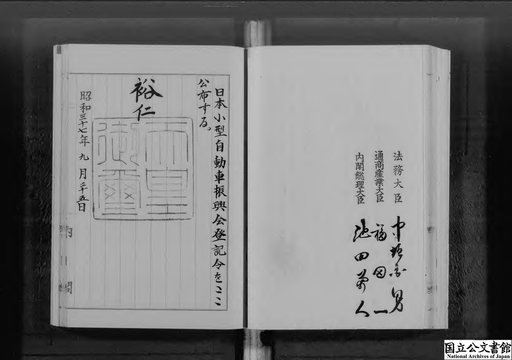 法務大臣 中垣國男
通商産業大臣 福田一
内閣総理大臣 池田勇人
日本小型自動車振興会登記令をここに
公布する。
裕仁
天皇
御璽
昭和三十七年九月二十五日
内閣
国立公文書館
National Archives of Japan